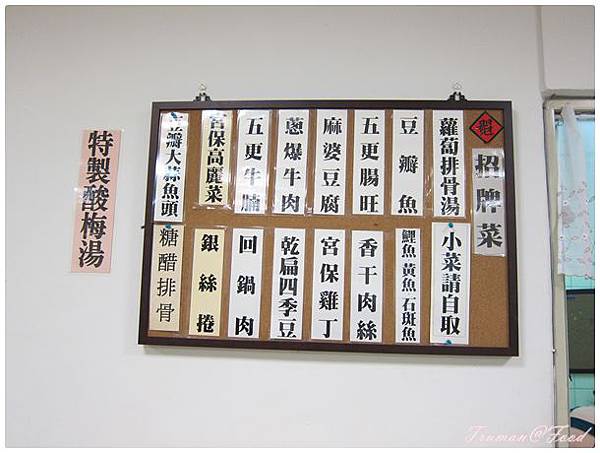 招牌菜
蘿蔔排骨湯
豆瓣魚
五更腸旺
麻婆豆腐
蔥爆牛肉
五更牛腩
宮保高麗菜
瓣大蒜魚頭
小菜請自取
鯉魚 黃魚 石斑魚
香干肉絲
宮保雞丁
乾扁四季豆
回鍋肉
銀絲捲
糖醋排骨
特製酸梅湯
Truman@Food